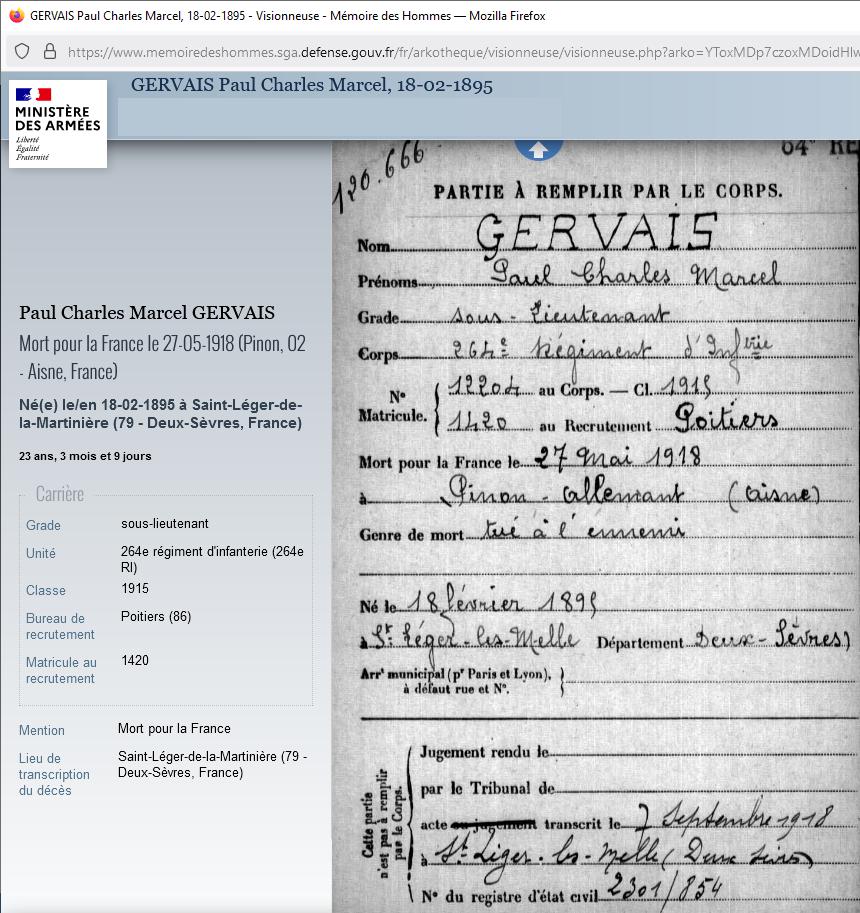 GERVAIS Paul Charles Marcel, 18-02-1895 - Visionneuse - Mémoire des Hommes — Mozilla Firefox
https://www.memoiredeshommes.sga.defense.gouv.fr/fr/arkotheque/visionneuse/visionneuse.php?arko=YToxMDp7czoxMDoidHlw
GERVAIS Paul Charles Marcel, 18-02-1895
MINISTÈRE
DES ARMÉES
Liberté
Égalité
Fraternité
Paul Charles Marcel GERVAIS
Mort pour la France le 27-05-1918 (Pinon, 02
- Aisne, France)
Né(e) le/en 18-02-1895 à Saint-Léger-de-
la-Martinière (79 - Deux-Sèvres, France)
23 ans, 3 mois et 9 jours
Carrière
Grade sous-lieutenant
Unité 264e régiment d'infanterie (264e
RI)
Classe 1915
Bureau de
recrutement
Poitiers (86)
Matricule au
recrutement
1420
Mention Mort pour la France
Lieu de
transcription
du décès
Saint-Léger-de-la-Martinière (79 -
Deux-Sèvres, France)
120.666
PARTIE À REMPLIR PAR LE CORPS.
Nom GERVAIS
Prénoms Paul Charles Marcel
Grade sous-Lieutenant
Corps 264e Régiment d'Infrie
N° Matricule.
12204 au Corps. — Cl. 1915
1420 au Recrutement Poitiers
Mort pour la France le 27 Mai 1918
à Pinon-Allemant (Aisne)
Genre de mort tué à l'ennemi
Né le 18 février 1895
à St Léger-les-Melle Département Deux-Sèvres)
Arrt municipal (pr Paris et Lyon),
à défaut rue et N°.
Cette partie
n'est pas à remplir
par le Corps.
Jugement rendu le
par le Tribunal de
acte ou jugement transcrit le 7 Septembre 1918
à St Léger-les-Melle (Deux Sèvres)
N° du registre d'état civil 2301/854